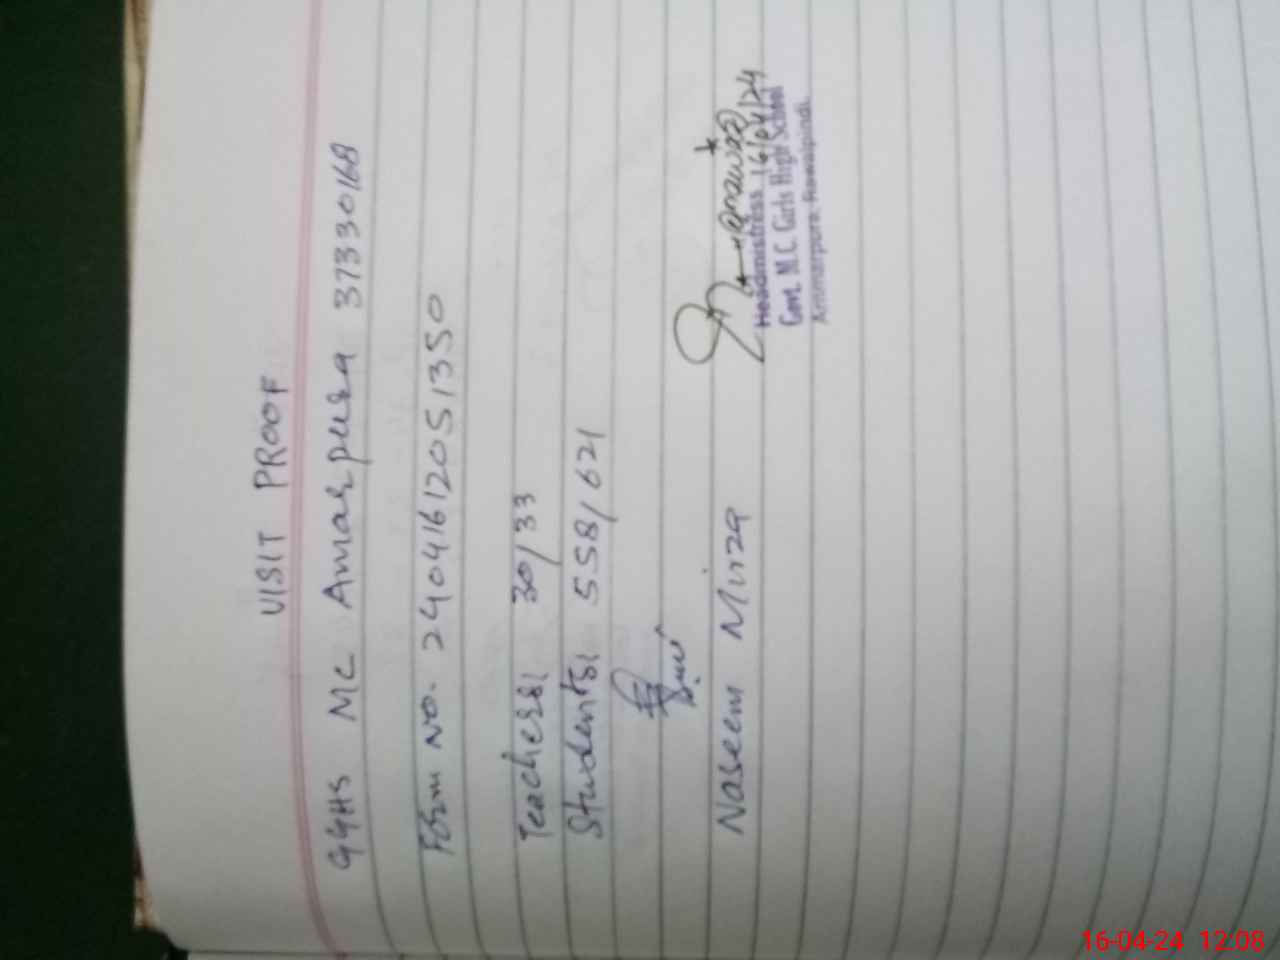 VISIT PROOF
GGHS MC Amarpura 37330168
Form No. 24041612051350
Teachers: 30/33
Students: 558/621
Naseem Mirza
16/04/24
Headmistress
Govt. M.C. Girls High School
Ammarpura Rawalpindi.
16-04-24 12:08